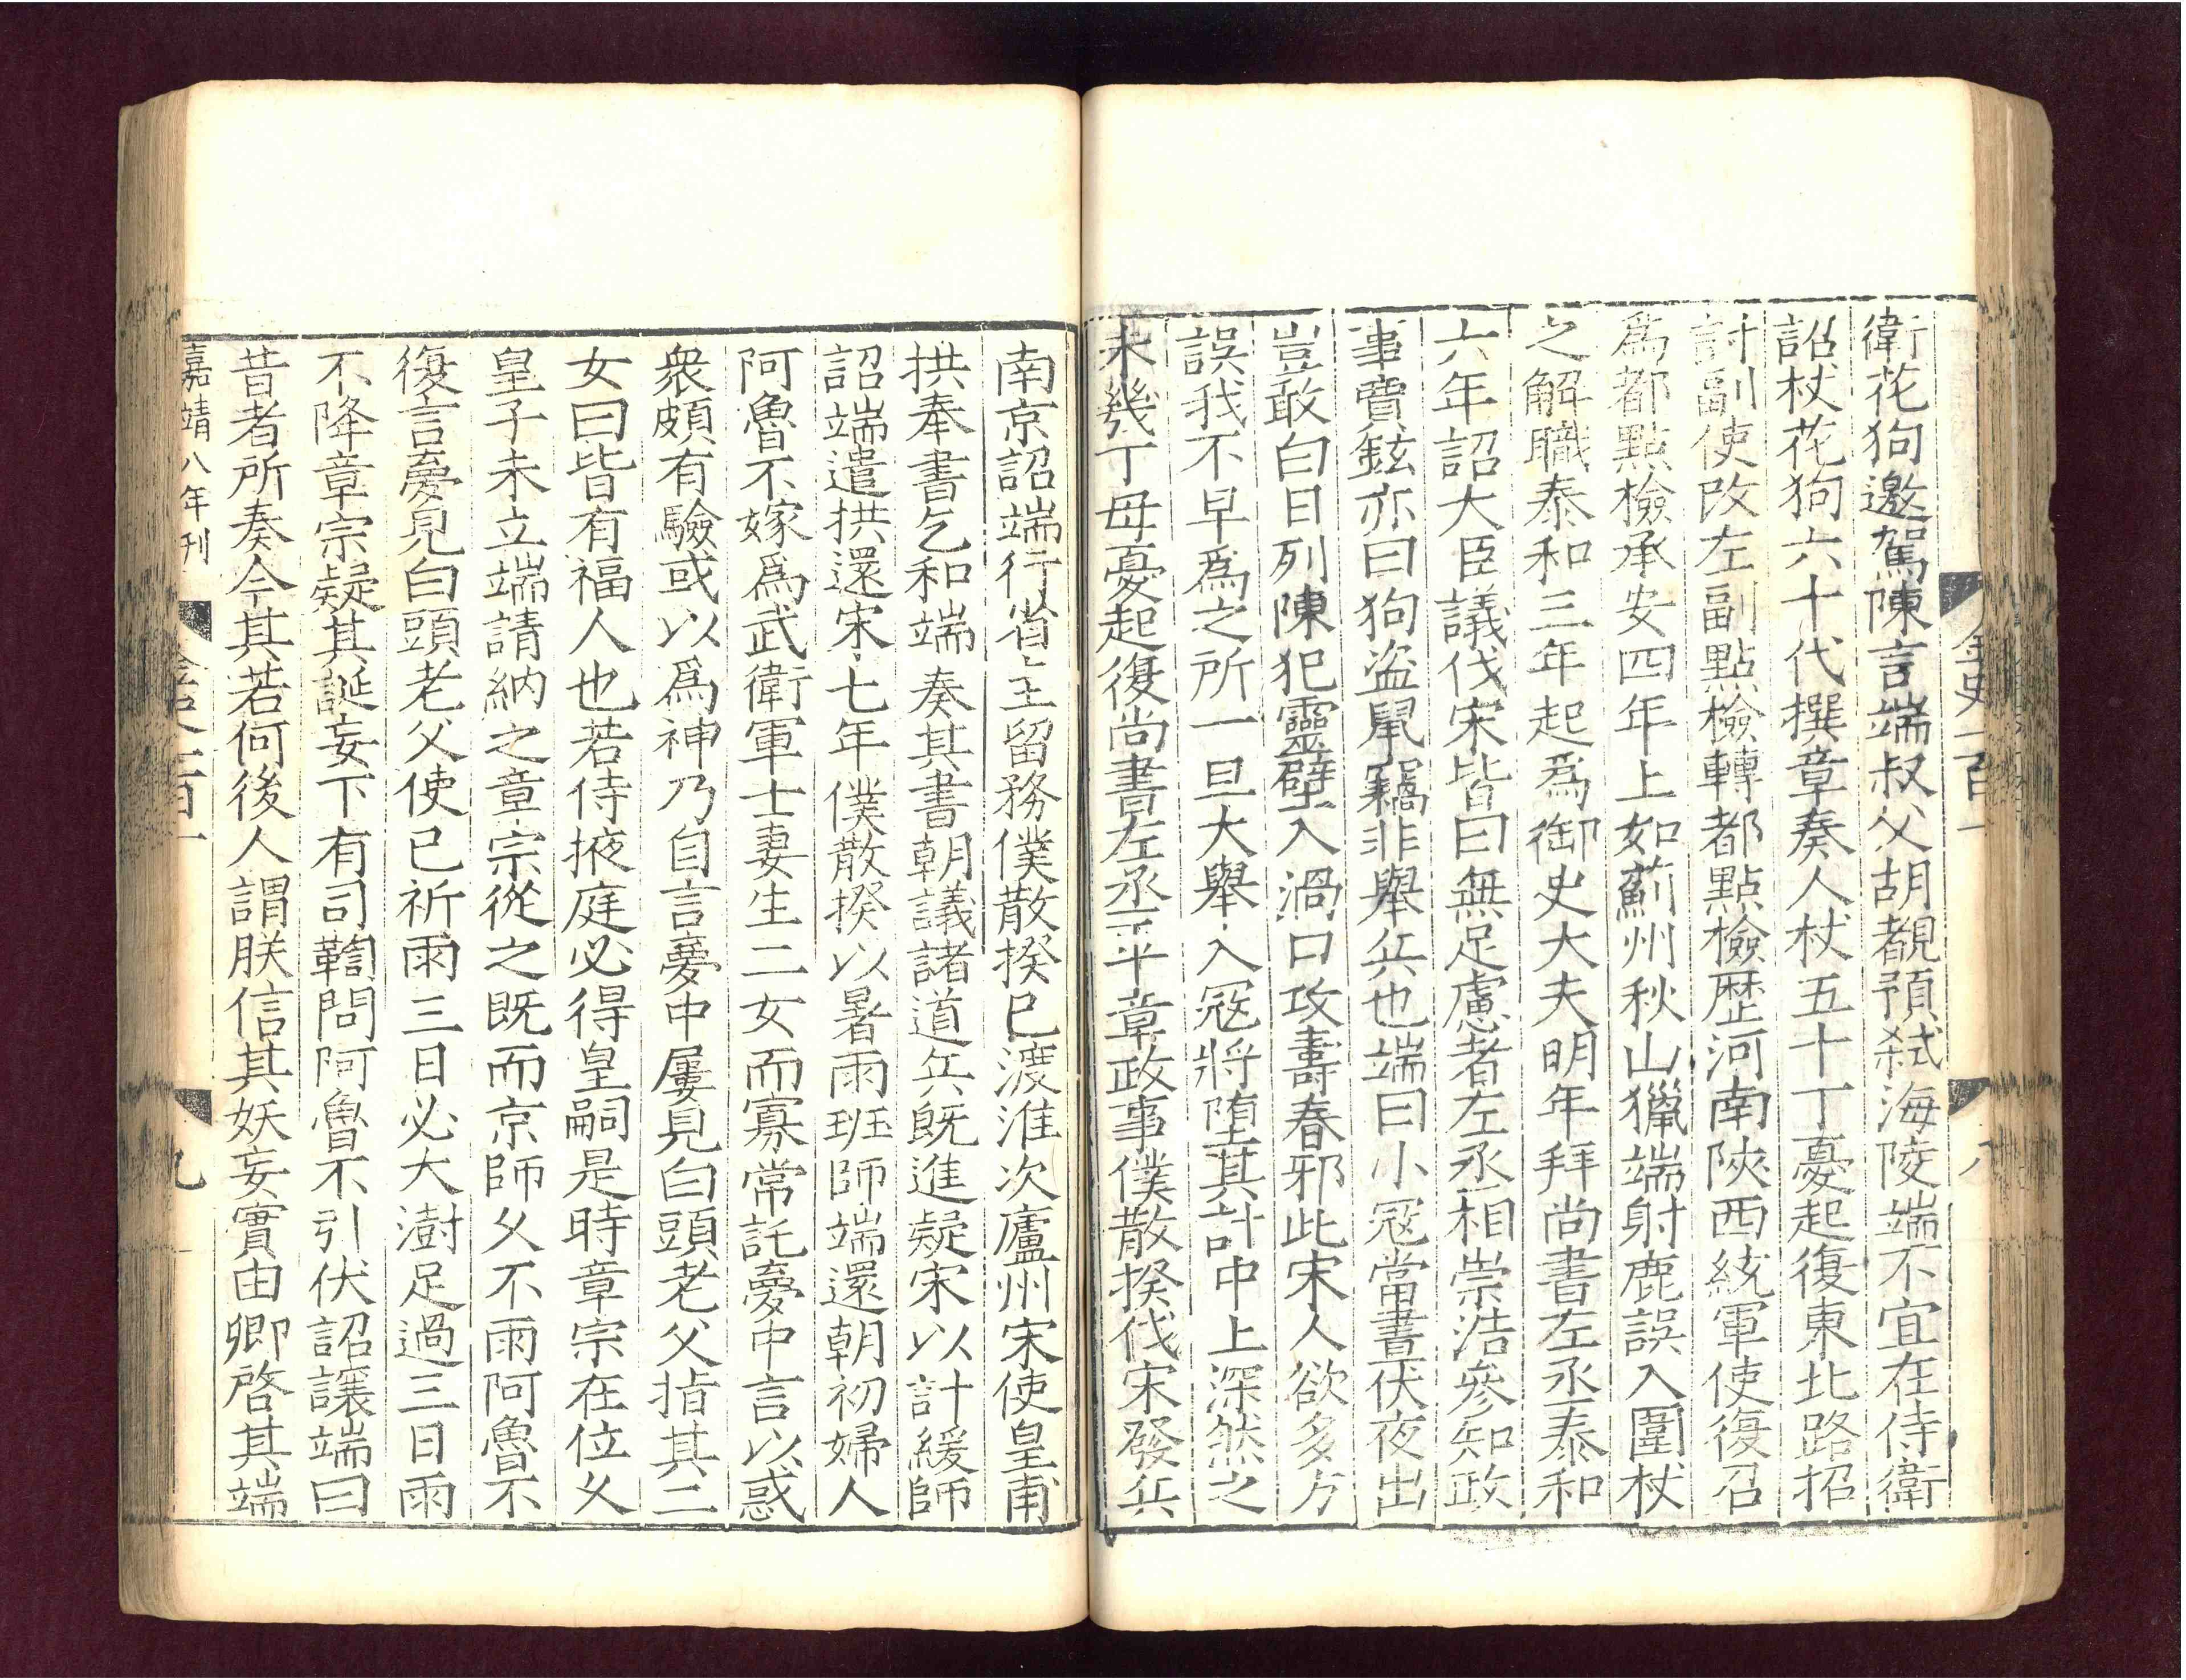 衛花狗邀駕陳言端叔父胡覩預弑海陵端不宜在侍衛
詔杖花狗六十代撰章奏人杖五十丁憂起復東北路招
討副使改左副點檢轉都點檢歷河南陝西統軍使復召
爲都點檢承安四年上如薊州秋山獵端射鹿誤入圍杖
之解職泰和三年起爲御史大夫明年拜尚書左丞泰和
六年詔大臣議伐宋皆曰無足慮者左丞相崇浩參知政
事賈鉉亦曰狗盗鼠竊非舉兵也端曰小冦當晝伏夜出
豈敢白日列陳犯靈壁入渦口攻壽春邪此宋人欲多方
誤我不早爲之所一旦大舉入冦將墮其計中上深然之
未幾丁母憂起復尚書左丞平章政事僕散揆伐宋發兵
金史一百一
八
南京詔端行省主留務僕散揆已渡淮次廬州宋使皇甫
拱奉書乞和端奏其書朝議諸道兵既進疑宋以計緩師
詔端遣拱還宋七年僕散揆以暑雨班師端還朝初婦人
阿魯不嫁爲武衛軍士妻生二女而寡常託夢中言以惑
衆頗有驗或以爲神乃自言夢中屢見白頭老父指其二
女曰皆有福人也若侍掖庭必得皇嗣是時章宗在位久
皇子未立端請納之章宗從之既而京師久不雨阿魯不
復言夢見白頭老父使已祈雨三日必大澍足過三日雨
不降章宗疑其誕妄下有司鞫問阿魯不引伏詔讓端曰
昔者所奏今其若何後人謂朕信其妖妄實由卿啓其端
嘉靖八年刊
金史一百一
九